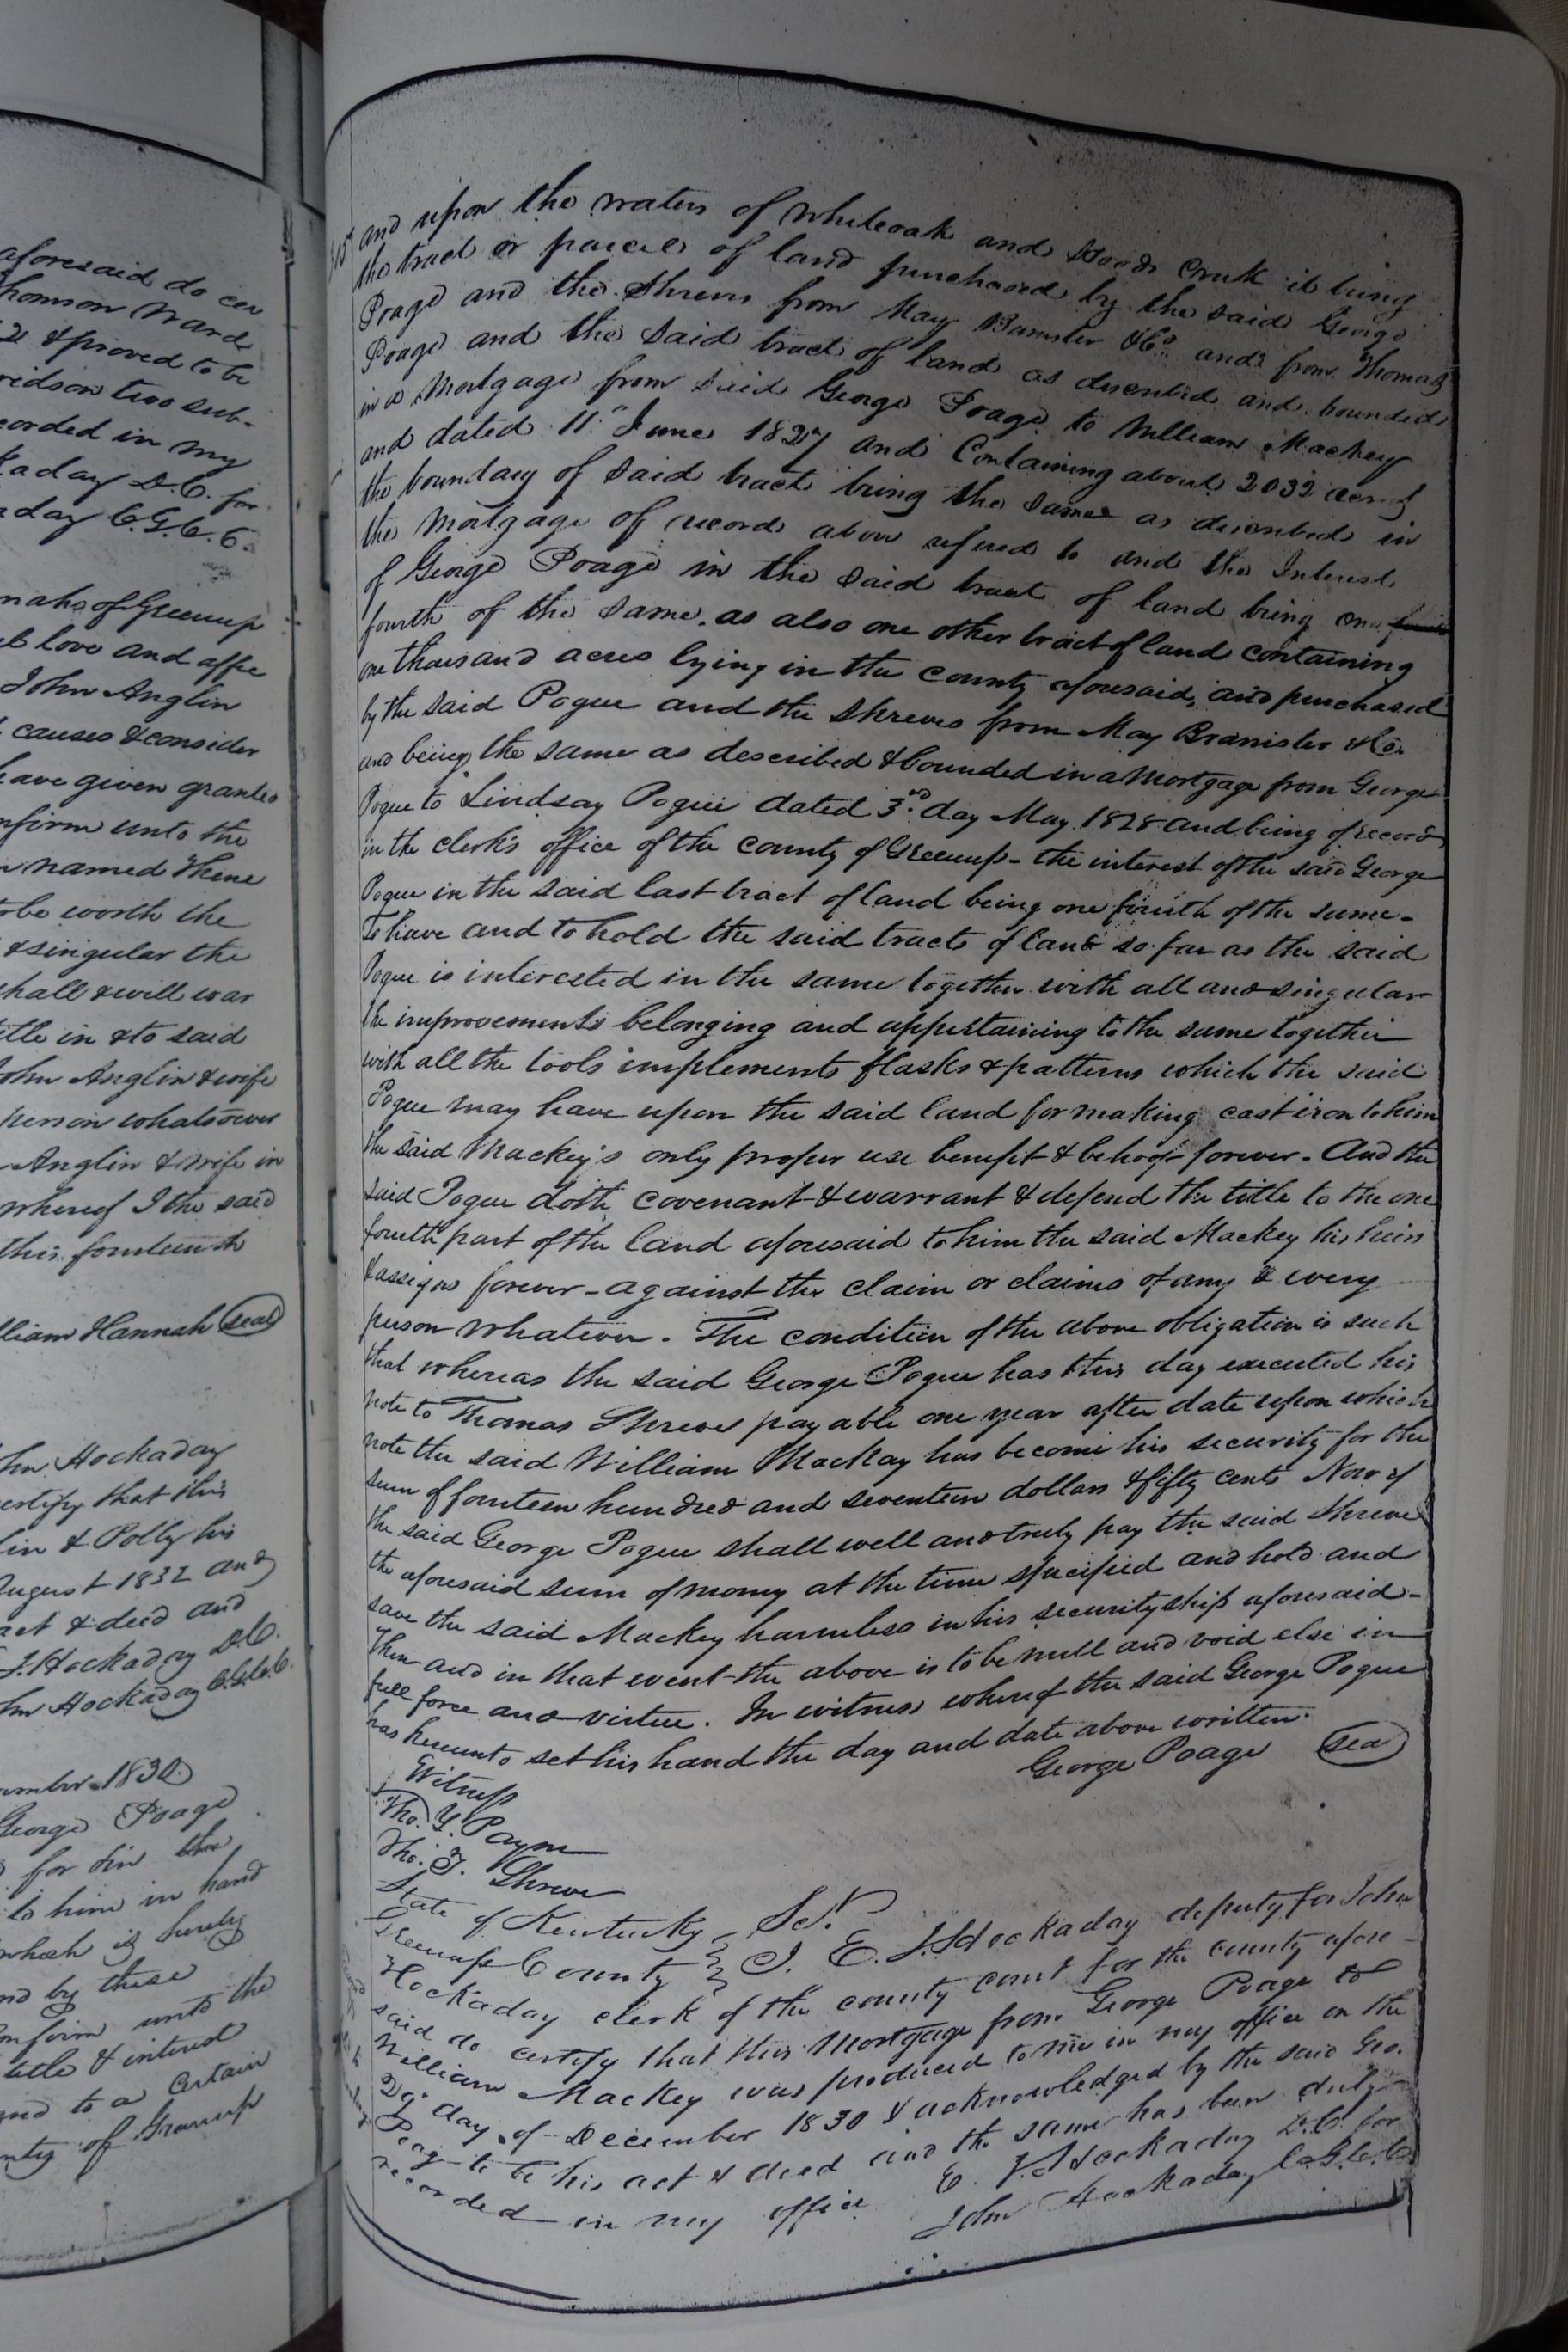 aforesaid do cer
Thomson Ward
& proved to be
ridson two sub-
corded in my
kaday D.C. for
aday C.G.C.C.
nahs of Greenup
love and affe
John Anglin
causes & consider
have given granted
nfirm unto the
named there
to be worth the
& singular the
shall & will war
title in & to said
John Anglin & wife
person whatsoever
Anglin & wife in
whereof I the said
this fourteenth
lliam Hannah (seal)
hn Hockaday
certify that this
lin & Polly his
August 1832 and
act & deed and
J. Hockaday D.C.
hn Hockaday C.G.C.C.
ember 1830
George Poage
for & in the
to him in hand
which is hereby
nd by these
onfirm unto the
title & interest
and to a certain
nty of Greenup
and upon the waters of Whiteoak and Hoods Creek it being
the tract or parcel of land purchased by the said George
Poage and the Shreves from May Banister & Co. and from Thomas
Poage and the said tract of land as described and bounded
in a Mortgage from said George Poage to William Mackey
and dated 11" June 1827 and Containing about 2032 acres
the boundary of said tract being the same as described in
the Mortgage of record above refered to and the Interest
of George Poage in the said tract of land being one
fourth of the same. as also one other tract of land containing
one thousand acres lying in the county aforesaid, and purchased
by the said Pogue and the Shreves from May Branister & Co.
and being the same as described & bounded in a Mortgage from George
Pogue to Lindsay Pogue dated 3rd day May 1828 and being of record
in the clerk's office of the county of Greenup - the interest of the said George
Pogue in the said last tract of land being one fourth of the same -
To have and to hold the said tracts of land so far as the said
Pogue is interested in the same together with all and singular
the improvements belonging and appertaining to the same together
with all the tools implements flasks & patterns which the said
Pogue may have upon the said land for making cast iron to him
the said Mackey's only proper use benefit & behoof forever - And the
said Pogue doth covenant & warrant & defend the title to the one
fourth part of the land aforesaid to him the said Mackey his heirs
& assigns forever - against the claim or claims of any & every
person whatever. The condition of the above obligation is such
that whereas the said George Pogue has this day executed his
note to Thomas Shreve payable one year after date upon which
note the said William Mackay has become his security for the
sum of fourteen hundred and seventeen dollars & fifty cents Now if
the said George Pogue shall well and truly pay the said Shreve
the aforesaid sum of money at the time specified and hold and
save the said Mackey harmless in his security ship aforesaid -
Then and in that event the above is to be null and void else in
full force and virtue. In witness whereof the said George Pogue
has hereunto set his hand the day and date above written.
George Poage (seal)
Witness
Tho. Y. Payne
Tho. J. Shreve
State of Kentucky Sct.
Greenup County } I. E. J. Hockaday deputy for John
Hockaday clerk of the county court for the county afore
said do certify that this Mortgage from George Poage to
William Mackey was produced to me in my office on the
day of December 1830 & acknowledged by the said Geo.
Poage to be his act & deed and the same has been duly
recorded in my office E. J. Hockaday D.C. for
John Hockaday C.G.C.C.